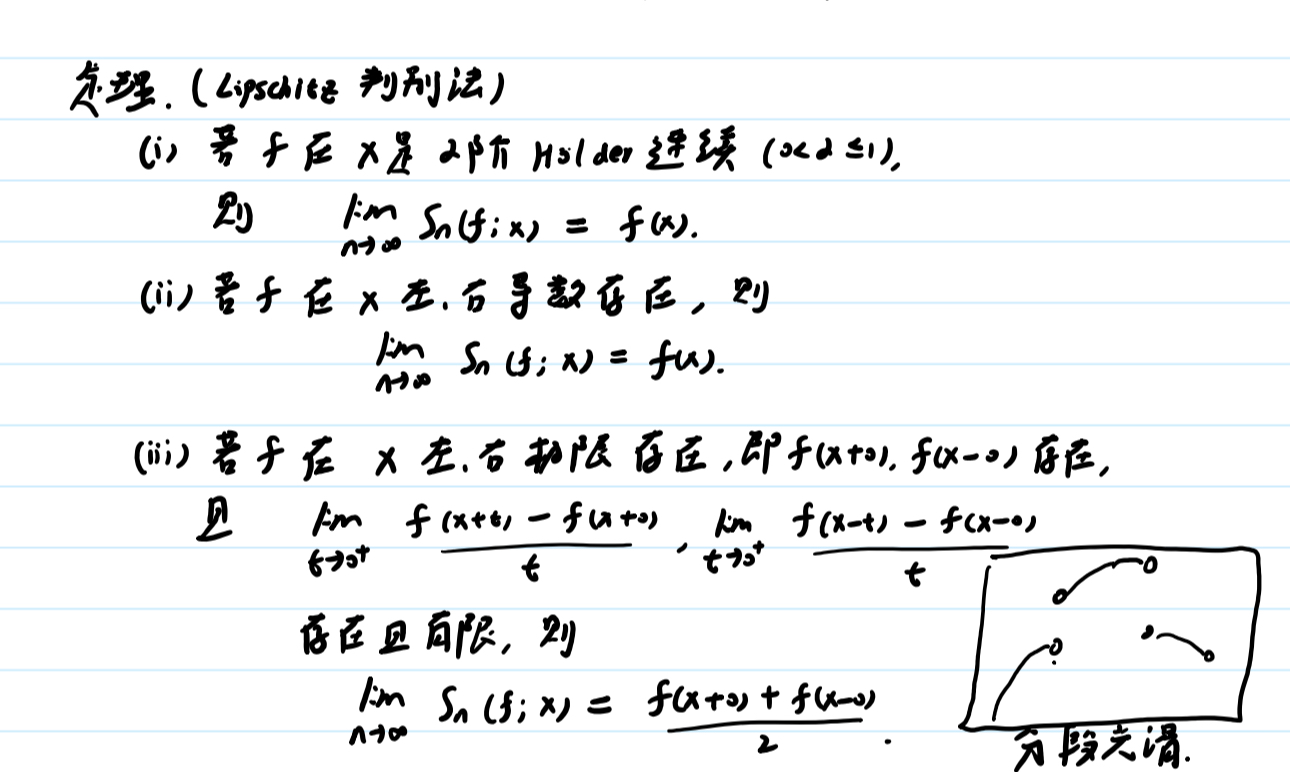 定理.(Lipschitz 判别法)
(i) 若 f 在 x 是 α阶 Hölder 连续 (0<α≤1),
则 lim_{n→∞} Sn(f;x) = f(x).
(ii) 若 f 在 x 左.右导数存在, 则
lim_{n→∞} Sn(f;x) = f(x).
(iii) 若 f 在 x 左.右极限存在,即 f(x+0), f(x-0) 存在,
且 lim_{t→0⁺} (f(x+t) - f(x+0))/t , lim_{t→0⁺} (f(x-t) - f(x-0))/t
存在且有限, 则
lim_{n→∞} Sn(f;x) = (f(x+0) + f(x-0))/2 .
分段光滑.